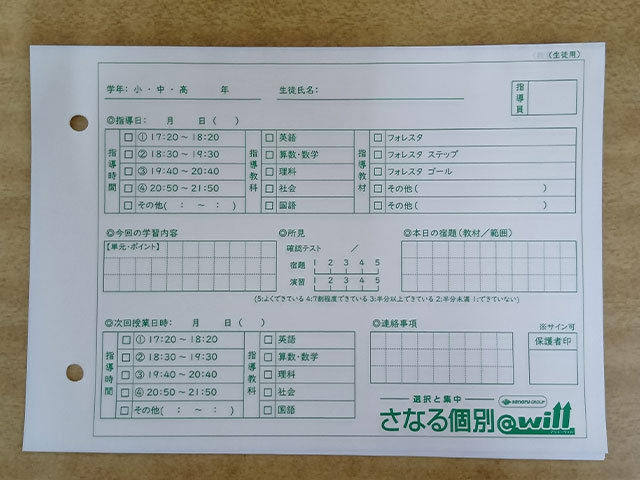 (生徒用)
学年: 小・中・高 年 生徒氏名: 指導員
◎指導日: 月 日 ( )
指導時間 □ ①17:20～18:20 指導教科 □ 英語 指導教材 □ フォレスタ
□ ②18:30～19:30 □ 算数・数学 □ フォレスタ ステップ
□ ③19:40～20:40 □ 理科 □ フォレスタ ゴール
□ ④20:50～21:50 □ 社会 □ その他( )
□ その他( : ～ : ) □ 国語 □ その他( )
◎今回の学習内容 ◎所見 ◎本日の宿題(教材／範囲)
【単元・ポイント】 確認テスト ／
1 2 3 4 5
宿題
1 2 3 4 5
演習
(5:よくできている 4:7割程度できている 3:半分以上できている 2:半分未満 1:できていない)
◎次回授業日時: 月 日 ( ) ◎連絡事項 ※サイン可
指導時間 □ ①17:20～18:20 指導教科 □ 英語 保護者印
□ ②18:30～19:30 □ 算数・数学
□ ③19:40～20:40 □ 理科
□ ④20:50～21:50 □ 社会
□ その他( : ～ : ) □ 国語
選択と集中 SANARU GROUP
さなる個別@will